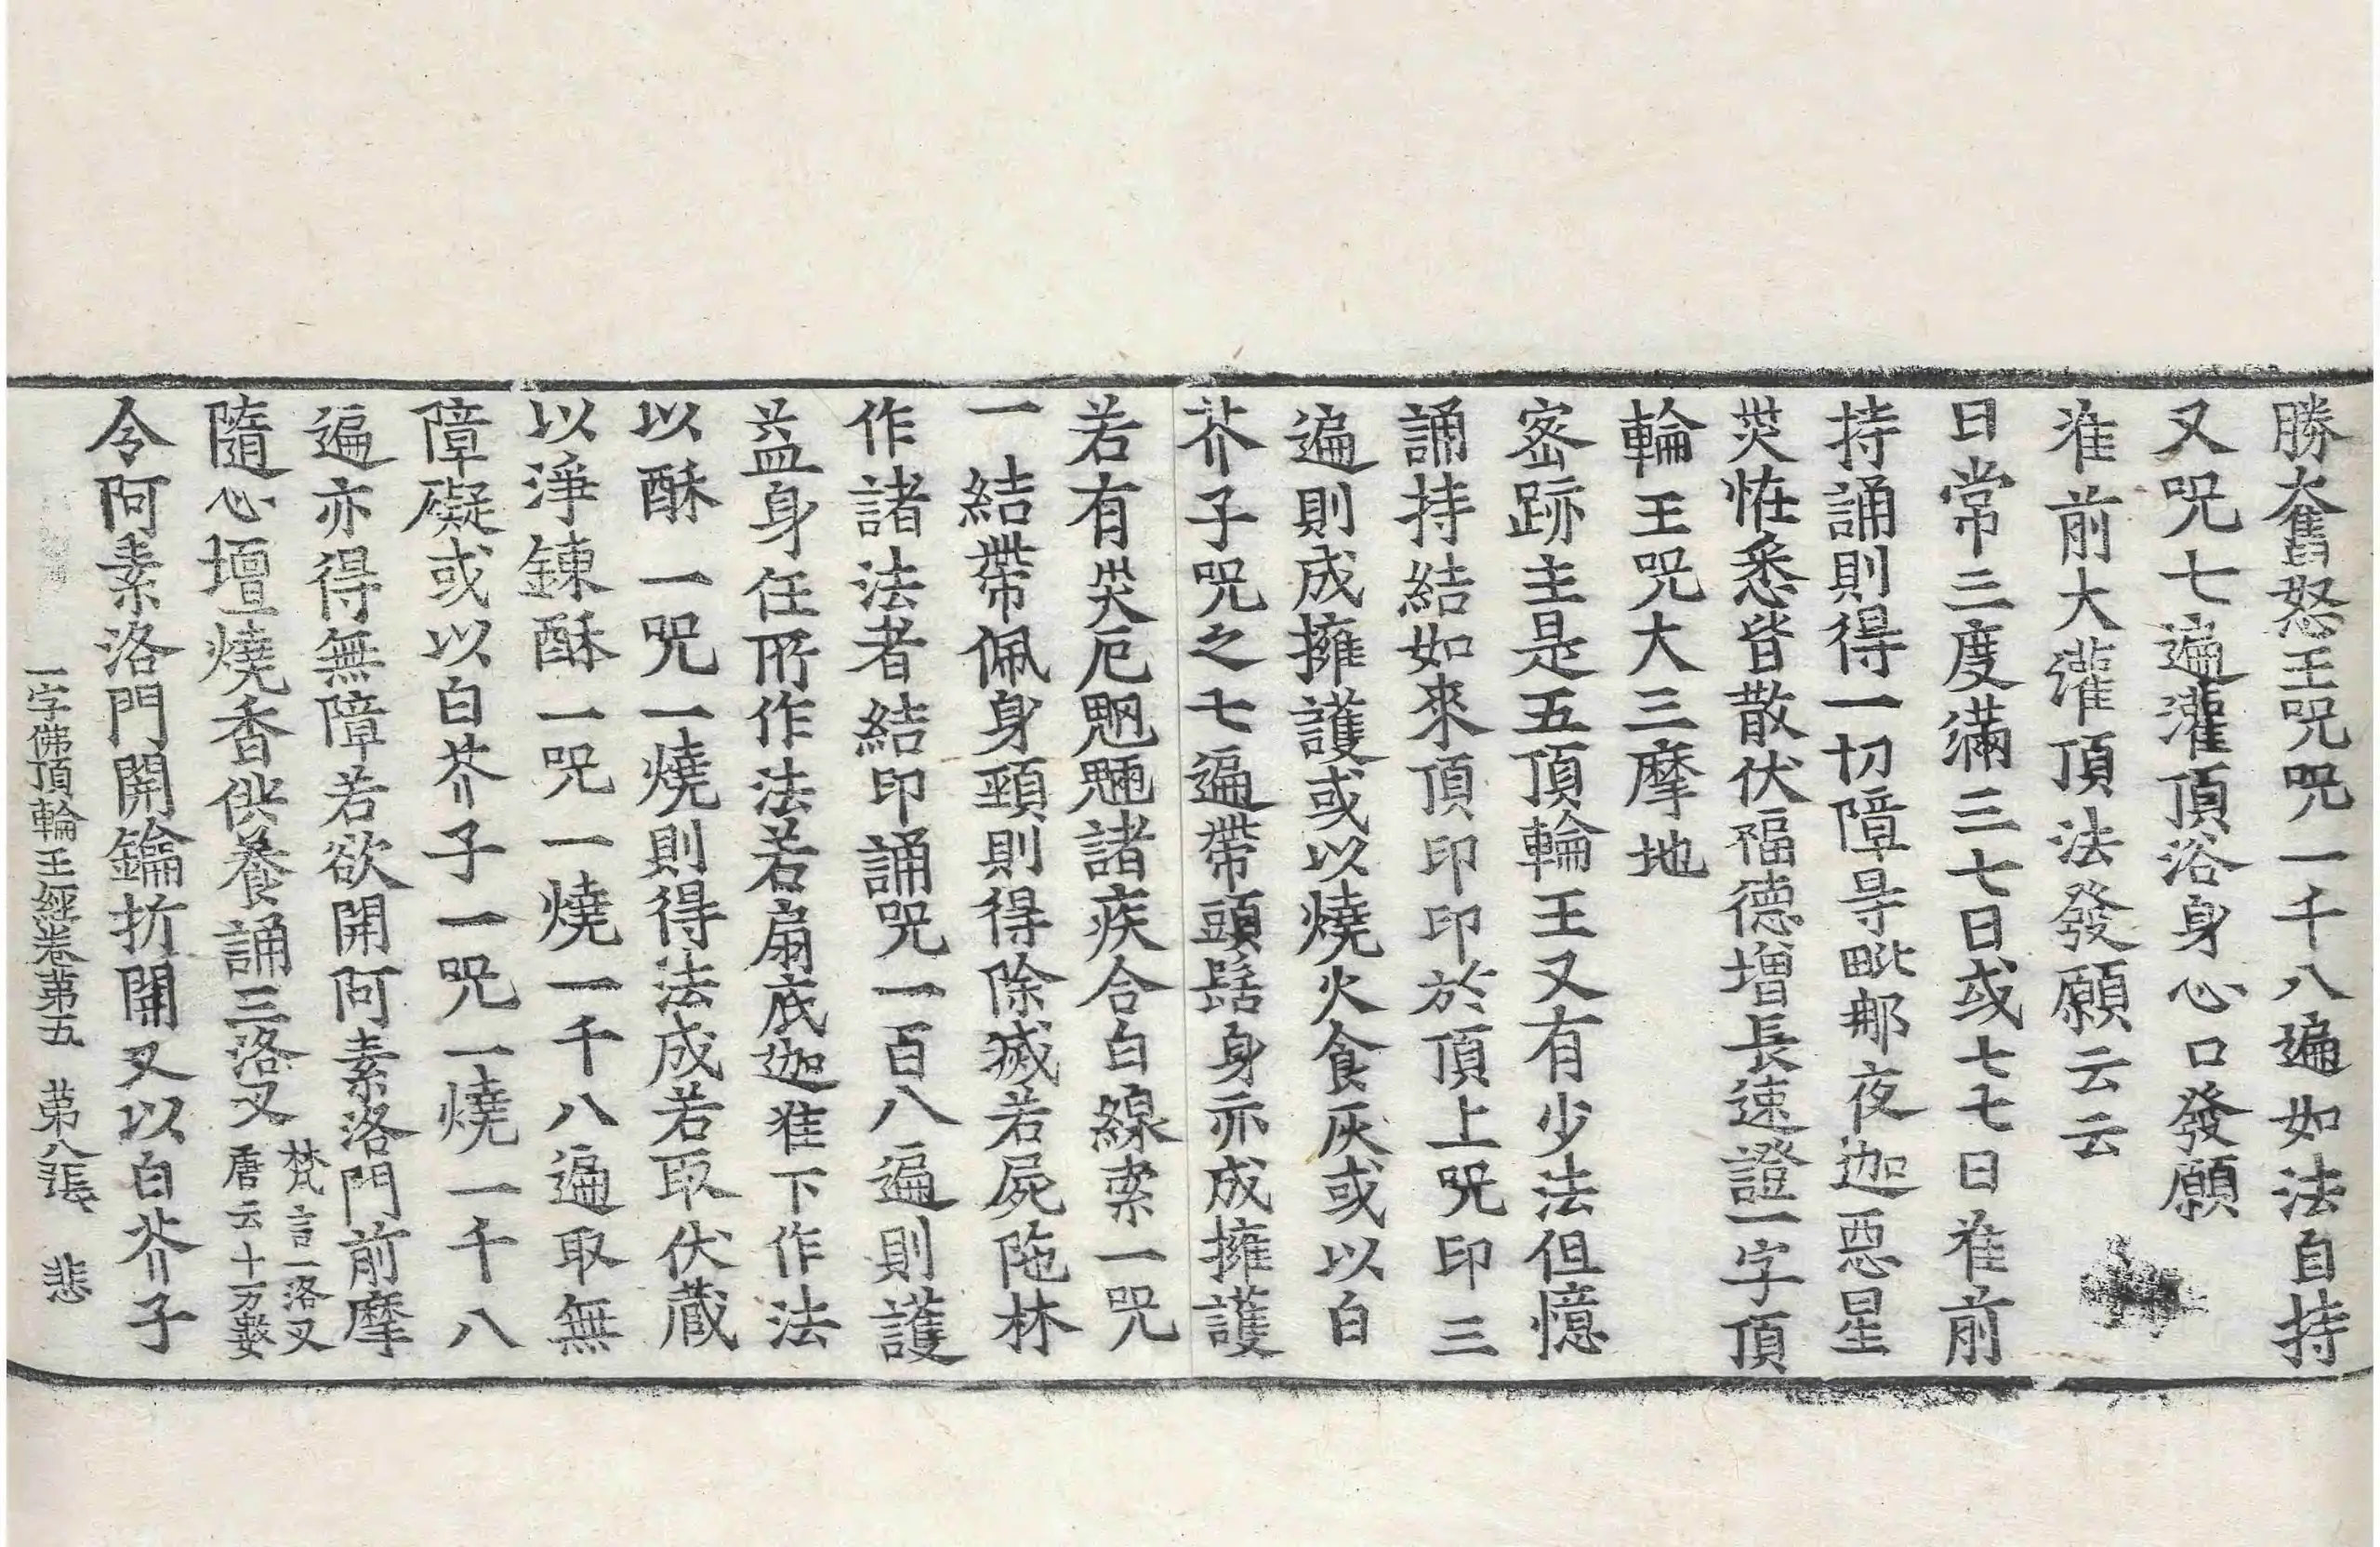 勝奮怒王咒咒一千八遍如法自持
又咒七遍灌頂浴身心口發願
准前大灌頂法發願云云
日常三度滿三七日或七七日准前
持誦則得一切障㝵毗那夜迦惡星
灾恠悉皆散伏福德增長速證一字頂
輪王咒大三摩地
密跡主是五頂輪王又有少法但憶
誦持結如來頂印印於頂上咒印三
遍則成擁護或以燒火食灰或以白
芥子咒之七遍帶頭髻身亦成擁護
若有灾厄魍魎諸疾合白線索一咒
一結帶佩身頸則得除滅若屍陁林
作諸法者結印誦咒一百八遍則護
益身任所作法若扇底迦准下作法
以酥一咒一燒則得法成若取伏藏
以淨鍊酥一咒一燒一千八遍取無
障礙或以白芥子一咒一燒一千八
遍亦得無障若欲開阿素洛門前摩
隨心壇燒香供養誦三洛叉梵言一洛叉唐云十万數
令阿素洛門開鑰折開又以白芥子
一字佛頂輪王經卷第五 第八張 悲